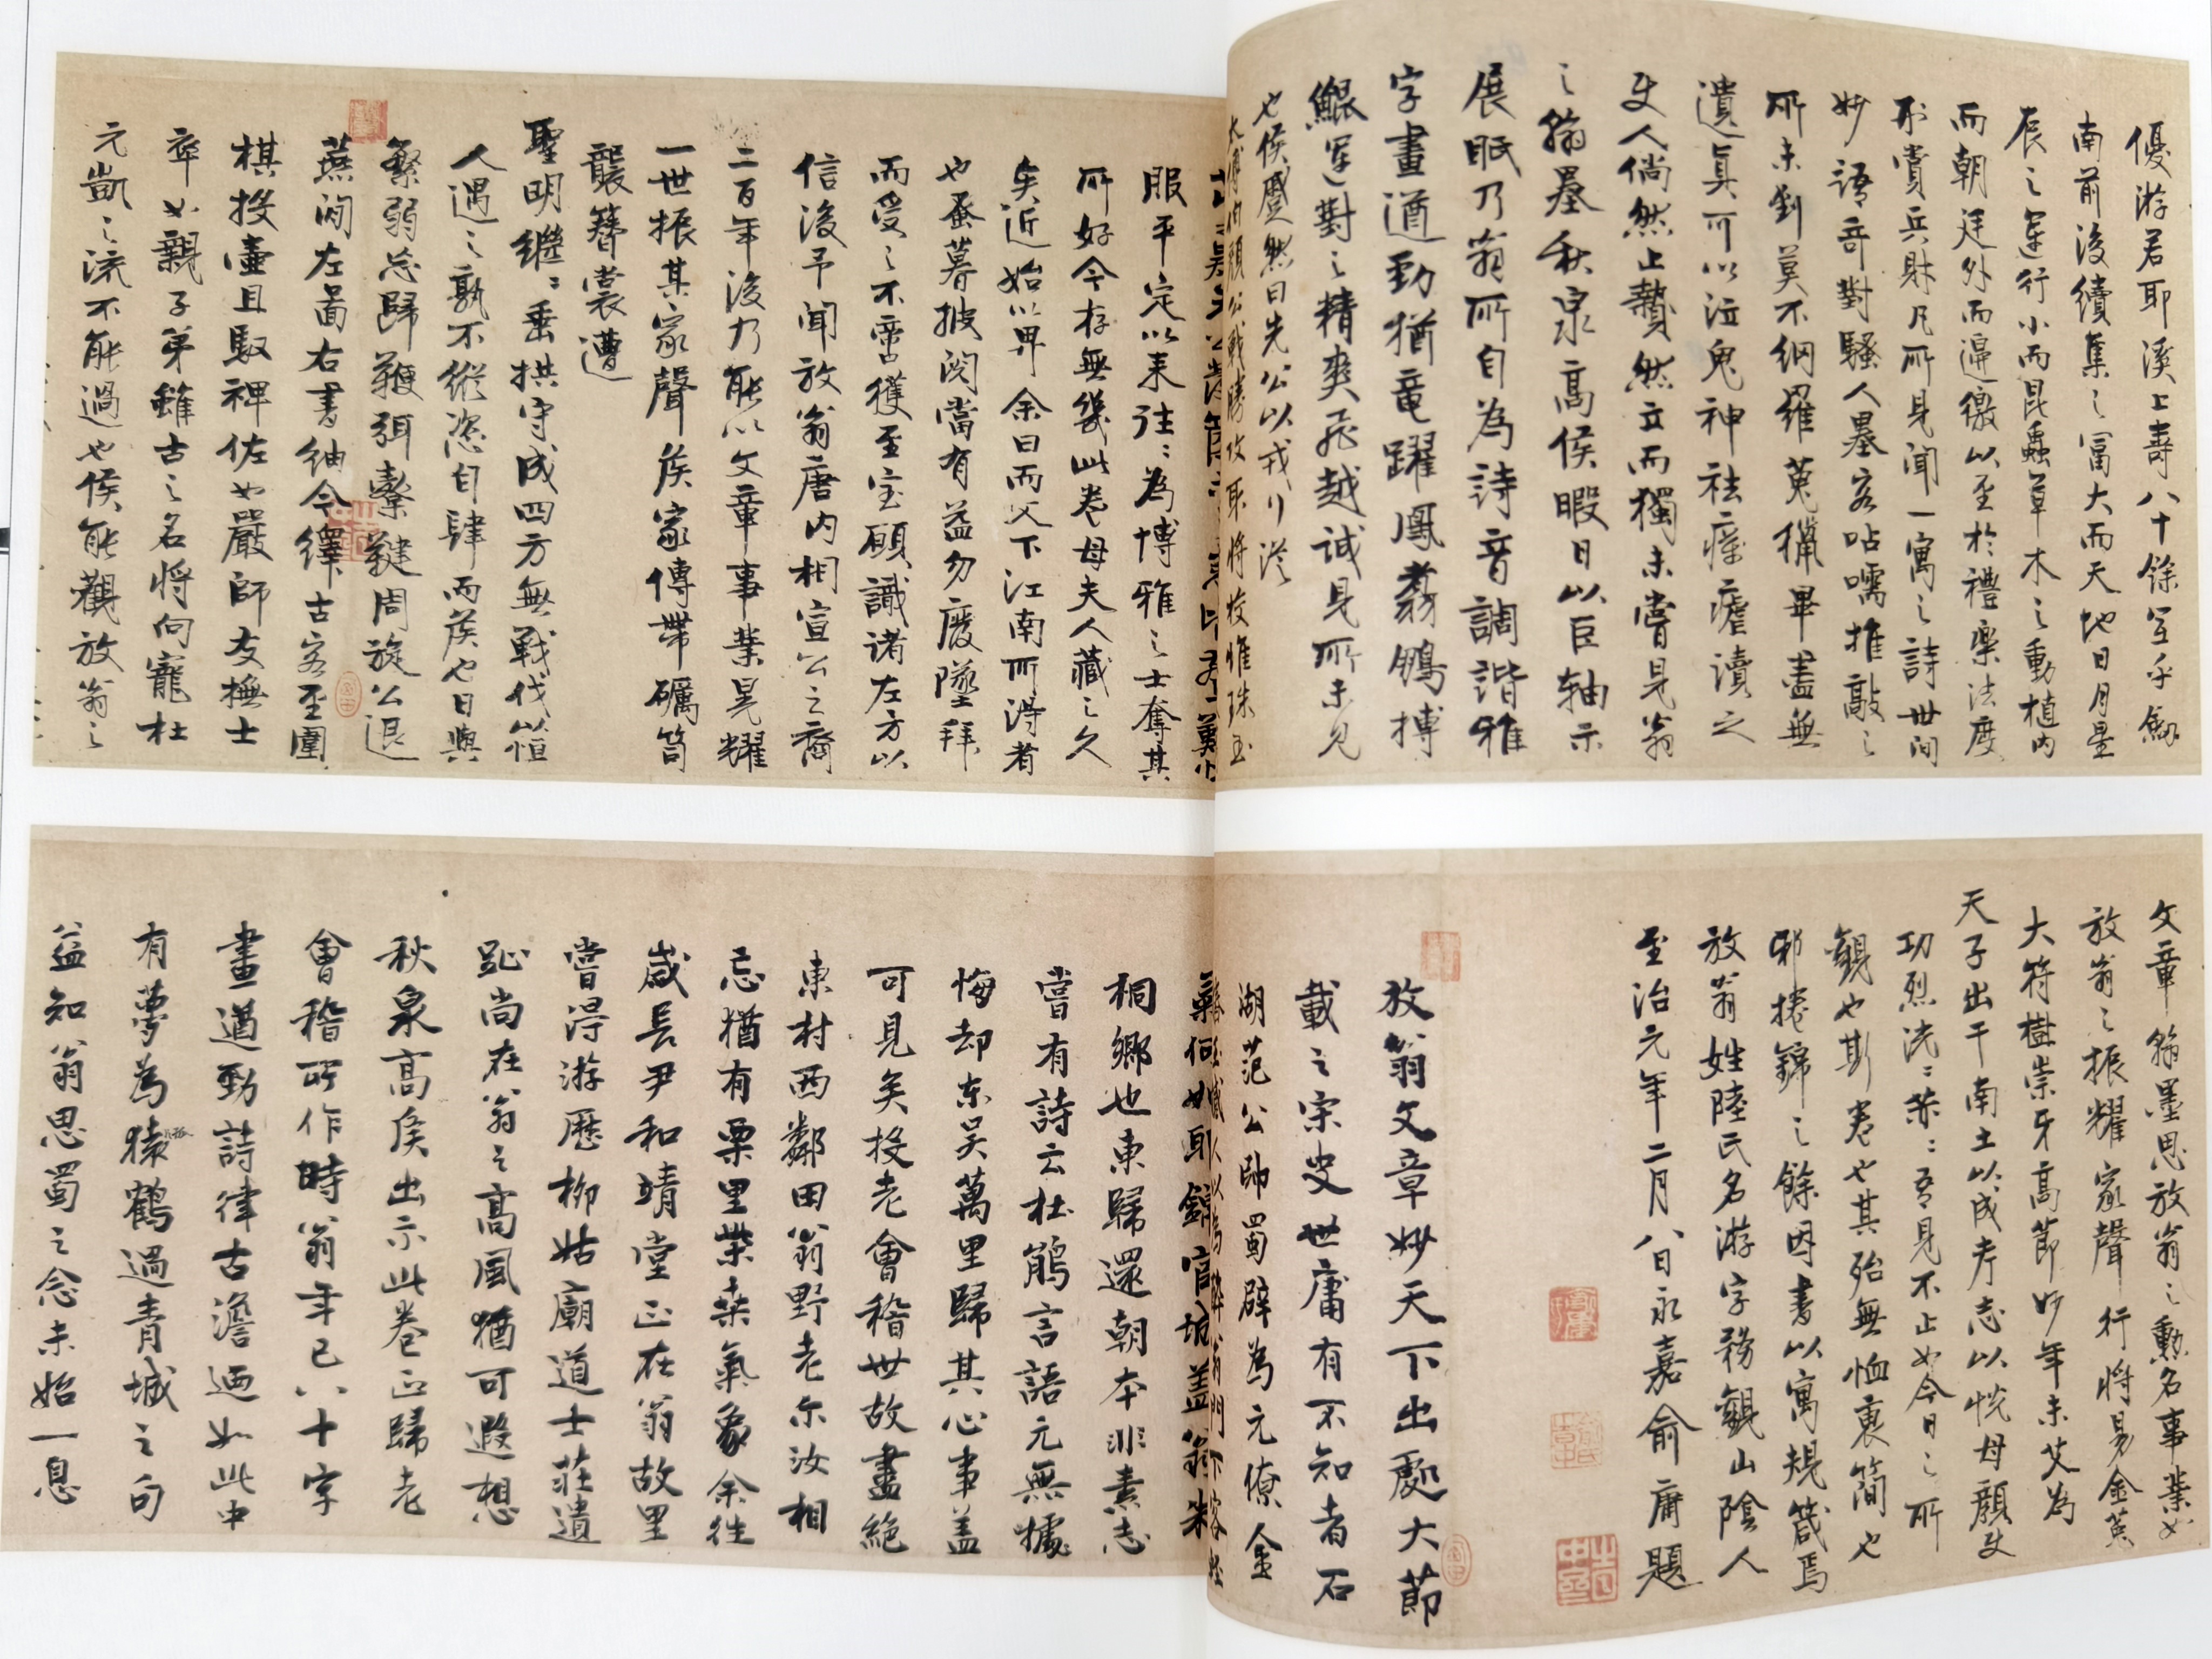 優游君耶溪上壽八十餘
南前後續集之富大而天地日月星
辰之運行小而昆蟲草木之動植內
而朝廷外而邊徼以至於禮樂法度
刑賞兵財凡所見聞一寓之詩世間
妙語奇對騷人墨客呫嚅推敲之
所未到莫不網羅蒐獵畢盡無
遺真可以泣鬼神祛瘧癘讀之
使人倘然止贄然立而獨未嘗見翁
之翰墨秋泉高侯暇日以巨軸示
展眂乃翁所自為詩音調諧雅
字畫遒勁猶竜躍鳳翥鵬摶
鯤運對之精爽飛越誠見所未見
也侯蹙然曰先公以戎行從
服平定以来往〻為博雅之士奪其
所好今存無幾此卷母夫人藏之久
矣近始以畀余曰而父下江南所得者
也蚤暮披閱當有益勿廢墜拜
而受之不啻獲至宝願識諸左方以
信後予聞放翁唐內相宣公之裔
二百年後乃能以文章事業晃耀
一世振其家聲矦家傳帶礪笥
襲簪裳遭
聖明繼〻垂拱守成四方無戰伐
人遇之孰不縱恣自肆而矦也日與
繁弱忘歸鞬弭櫜鞬周旋公退
燕閒左畐右書紬今繹古客至圍
棋投壷且馭裨佐如嚴師友撫士
卒如親子弟雖古之名將向寵杜
元凱之流不能過也侯能觀放翁之
文章翰墨思放翁之勳名事業如
放翁之振耀家聲行將易金
大符樹崇牙高節妙年未艾為
天子出干南土以成考志以恱母顏史
功烈洸〻赫〻吾見不止如今日之所
觀也斯卷也其殆無恤褱簡也
邪捲錦之餘因書以寓規箴焉
放翁姓陸氏名游字務觀山陰人
至治元年二月八日永嘉俞庸題
放翁文章妙天下出處大節
載之宋史世庸有不知者石
湖范公帥蜀辟為元僚金
桐鄉也東歸還朝夲非素志
嘗有詩云杜鵑言語元無據
悔却东吴萬里歸其心事盖
可見矣投老會稽世故盡絶
東村西鄰田翁野老尔汝相
忘猶有栗里柴桑氣象余往
歲長尹和靖堂正在翁故里
嘗得游歷柳姑廟道士莊遺
跡尚在翁之高風猶可遐想
秋泉高矦出示此卷正歸老
會稽所作時翁年已八十字
畫遒勁詩律古澹迺如此中
有夢為猿鶴過青城之句
益知翁思蜀之念未始一息